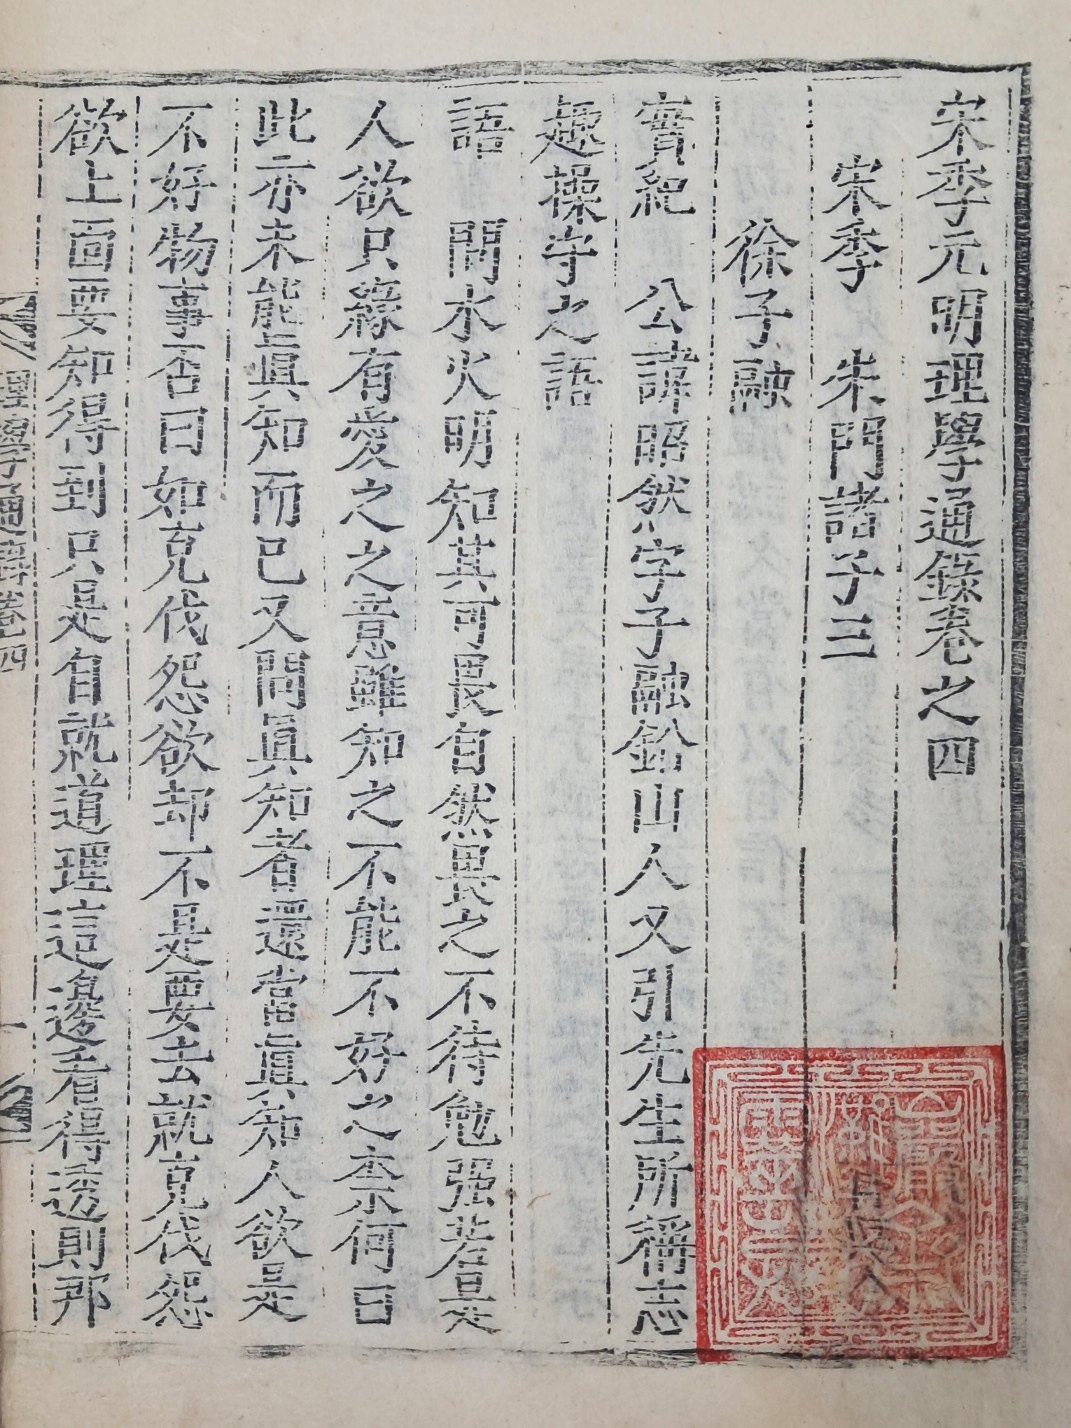 宋季元明理學通錄卷之四
宋季 朱門諸子三
徐子融
實紀 公諱昭然字子融鉛山人又引先生所稱志
趣操守之語
語 問水火明知其可畏自然畏之不待勉强若是
人欲只緣有愛之之意雖知之不能不好之柰何曰
此亦未能眞知而已又問眞知者還當眞知人欲是
不好物事否曰如克伐怨欲却不是要去就克伐怨
欲上面要知得到只是自就道理這邊看得透則那
理學通錄卷四
一